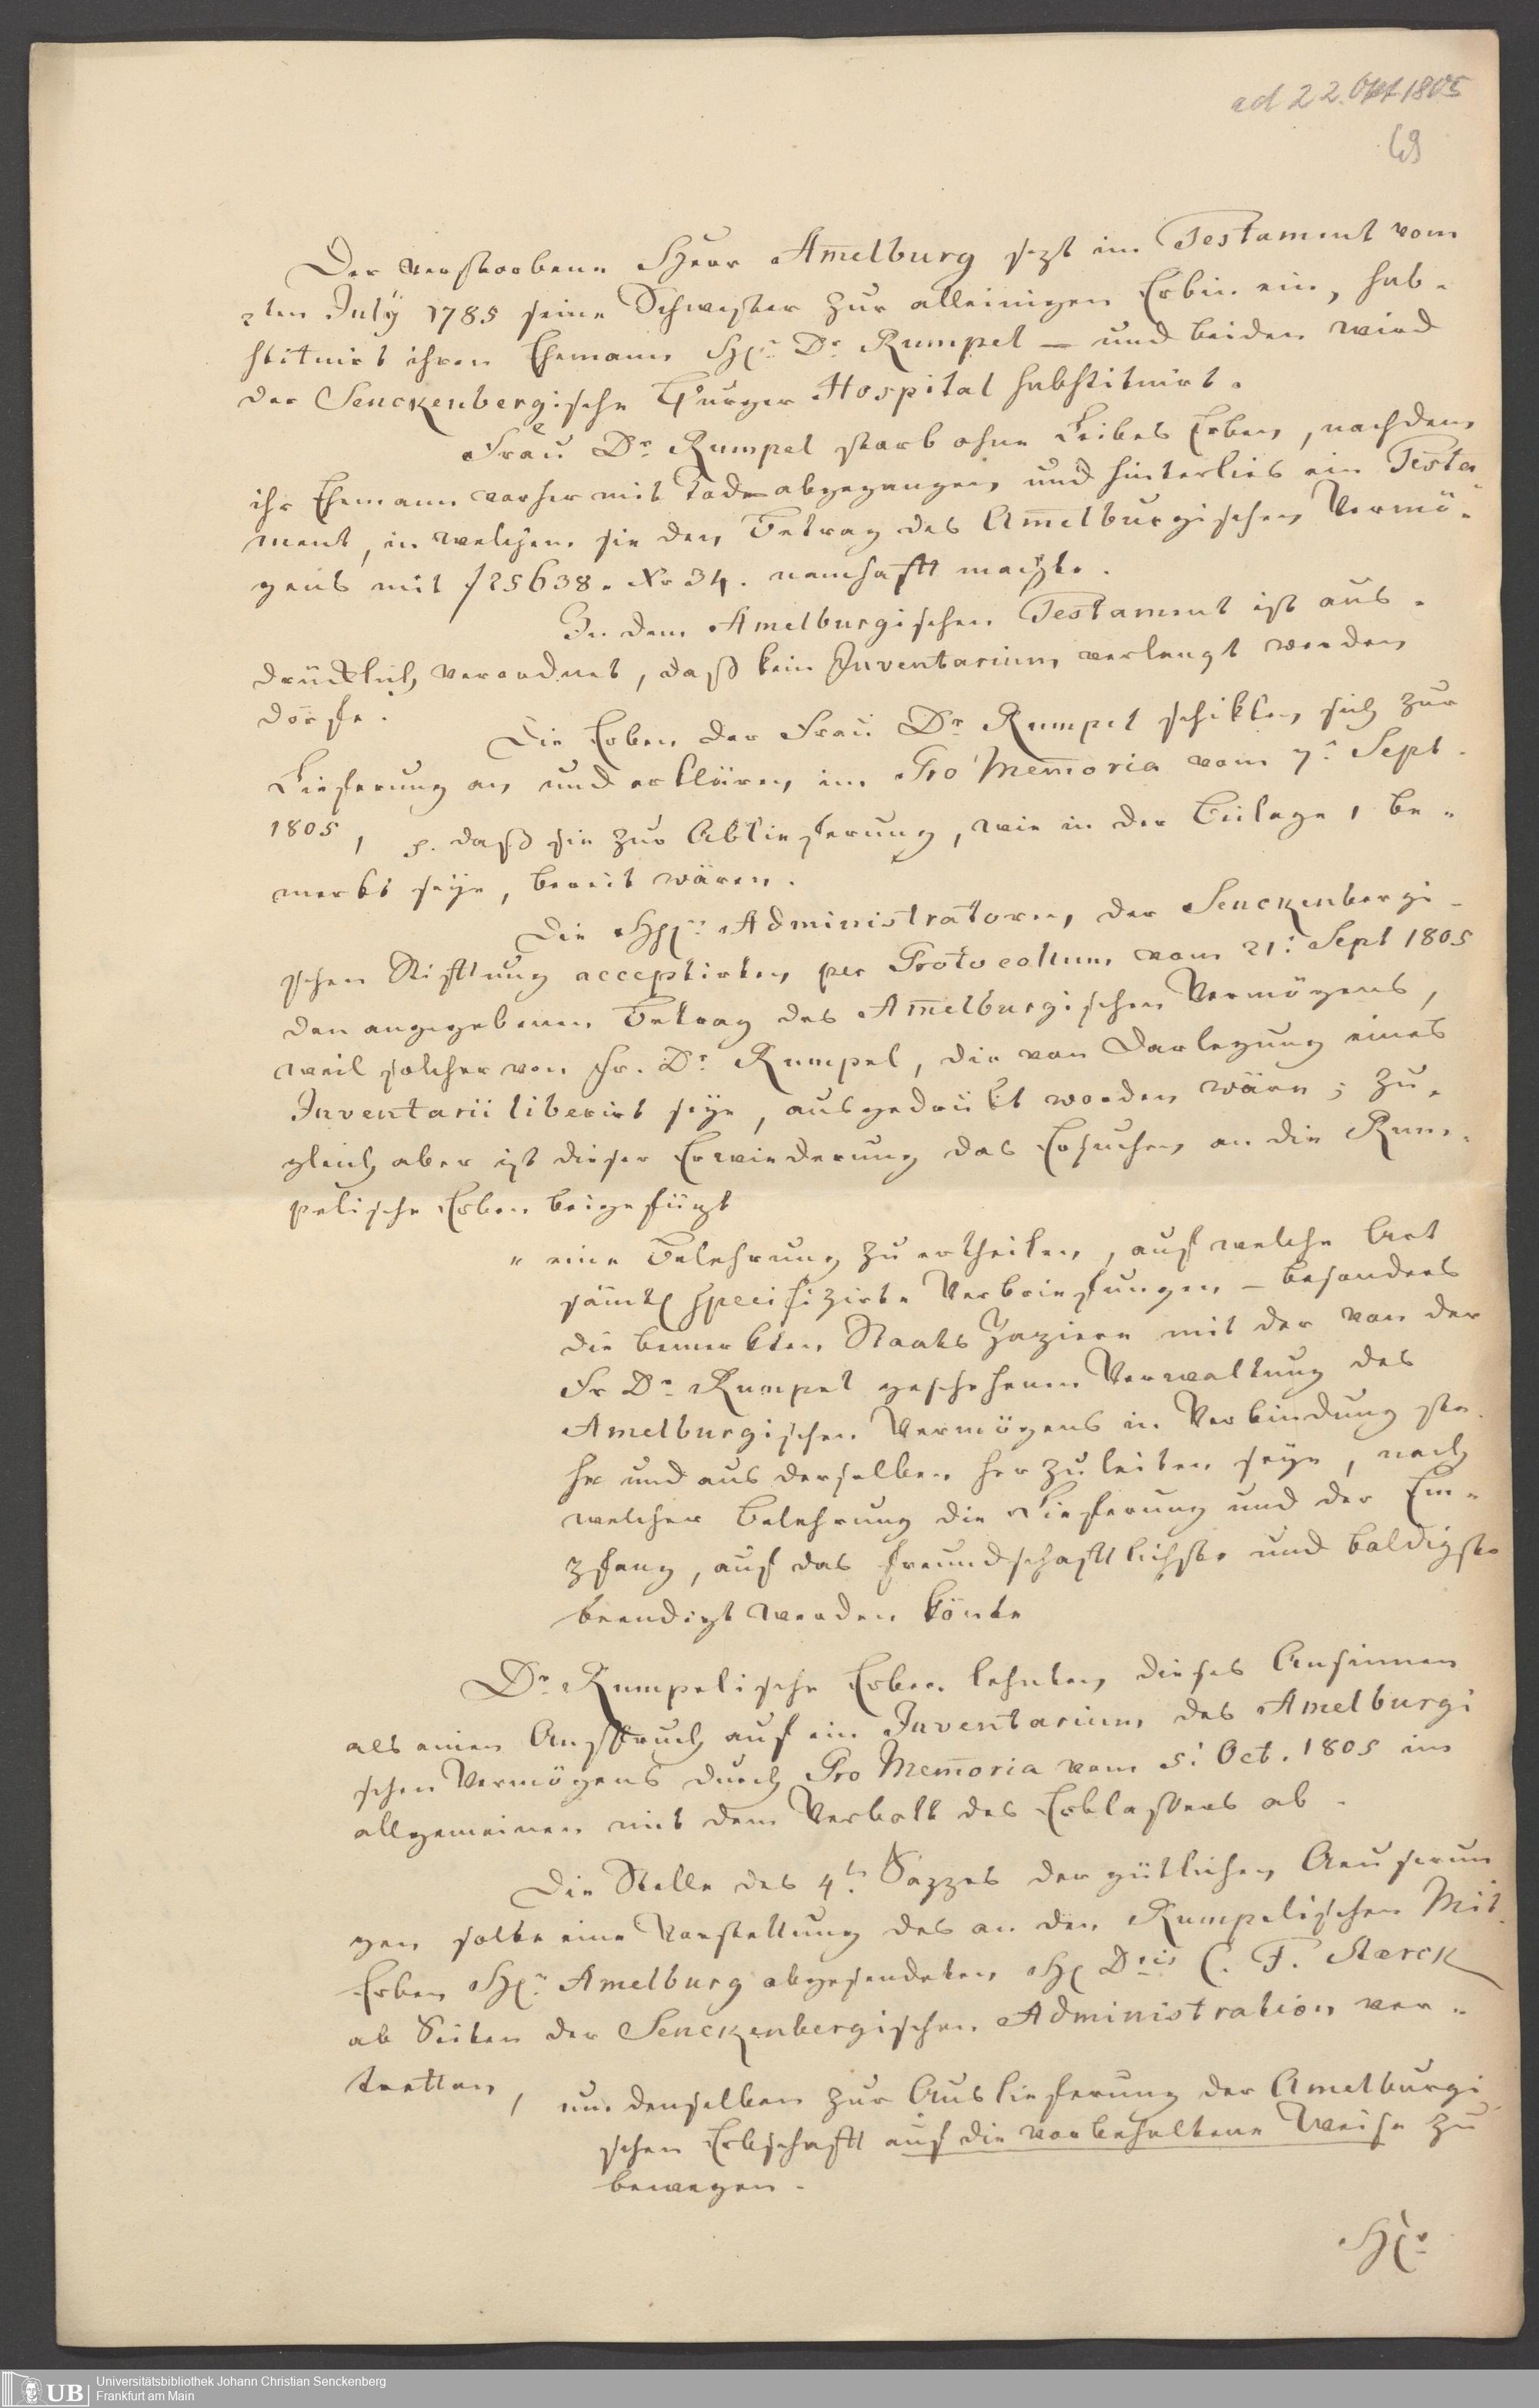 ad 22. Okt 1805
69
Der verstorbene Herr Am̅elburg sezt im Testament vom
2ten July 1785 seine Schwester zur alleinigen Erbin ein, sub-
stituirt ihren Ehemann H. Dr Rumpel – und beiden wird
der Senckenbergische Bürger Hospital substituirt.
Frau Dr Rumpel starb ohne Leibes Erben, nachdem
ihr Ehemann vorher mit Tode abgegangen und hinterlies ein Testa-
ment, in welchem sie den Betrag des Am̅elburgischen Vermö-
gens mit f 25638. Xr 34. namhafft machte.
In dem Amelburgischen Testament ist aus-
drücklich verordnet, daß kein Inventarium verlangt werden
dörfe.
Die Erben der Frau Dr Rumpel schikten sich zur
Lieferung an, und erklären im Pro Mem̅oria vom 7. Sept.
1805, daß sie zur Ablieferung, wie in der Beilage 1 be-
merkt seye, bereit wären.
Die HH. Administratoren der Senckenbergi-
schen Stifftung acceptirten per Protocollum vom 21. Sept 1805
den angegebenen Betrag des Am̅elburgischen Vermögens,
weil solcher von Fr. Dr Rumpel, die von Darlegung eines
Inventarii liberirt seye, ausgedrückt worden wäre; zu-
gleich aber ist dieser Erwiederung das Ersuchen an die Rum-
pelische Erben beigefügt
„ eine Belehrung zu ertheilen, auf welche Art
sämtl. specifizirte Verbriefungen – besonders
die bemerkten Staats Papiere mit der von der
Fr Dr Rumpel geschehenen Verwaltung des
Amelburgischen Vermögens in Verbindung ste-
he und aus derselben herzuleiten seye, nach
welcher Belehrung die Lieferung und der Em-
pfang, auf das freundschafftlichste und baldigste
beendigt werden könte
Dr Rumpelische Erben lehnten dieses Ansinnen
als einen Anspruch auf ein Inventarium des Amelburgi
schen Vermögens durch Pro Mem̅oria vom 5. Oct. 1805 im
allgemeinen mit dem Verbott des Erblaßers ab.
Die Stelle des 4ten Sazzes der gütlichen Aeuserun
gen solte eine Vorstellung des an den Rumpelischen Mit-
Erben H. Amelburg abgesendeten H. Dris C. F. Starck
ab Seiten der Senckenbergischen Administration ver-
tretten, um denselben zur Auslieferung der Amelburgi
schen Erbschafft auf die vorbehaltene Weise zu
bewegen.
Hr
UB
Universitätsbibliothek Johann Christian Senckenberg
Frankfurt am Main